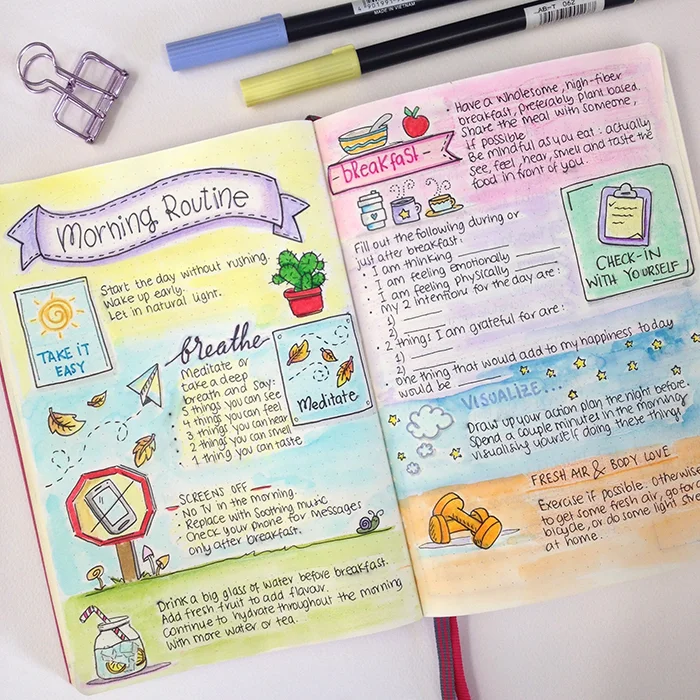 MADE IN VIETNAM
AB-T 062
Morning Routine
Start the day without rushing.
Wake up early.
Let in natural light.
TAKE IT
EASY
breathe
Meditate or
take a deep
breath and say:
5 things you can see
4 things you can feel
3 things you can hear
2 things you can smell
1 thing you can taste
Meditate
SCREENS OFF
• No TV in the morning.
• Replace with soothing music
• Check your phone for messages
only after breakfast.
Drink a big glass of water before breakfast.
Add fresh fruit to add flavour.
Continue to hydrate throughout the morning
with more water or tea.
- breakfast -
• Have a wholesome, high-fiber
breakfast, preferably plant based.
Share the meal with someone,
if possible.
Be mindful as you eat: actually
see, feel, hear, smell and taste the
food in front of you.
Fill out the following during or
just after breakfast:
• I am thinking
• I am feeling emotionally
• I am feeling physically
• My 2 intentions for the day are:
1)
2)
• 2 things I am grateful for are:
1)
2)
• one thing that would add to my happiness today
would be
CHECK-IN
WITH YOURSELF
VISUALIZE...
Draw up your action plan the night before.
Spend a couple minutes in the morning
visualising yourself doing these things.
FRESH AIR & BODY LOVE
Exercise if possible. Otherwise
to get some fresh air, go for a
bicycle, or do some light
at home.